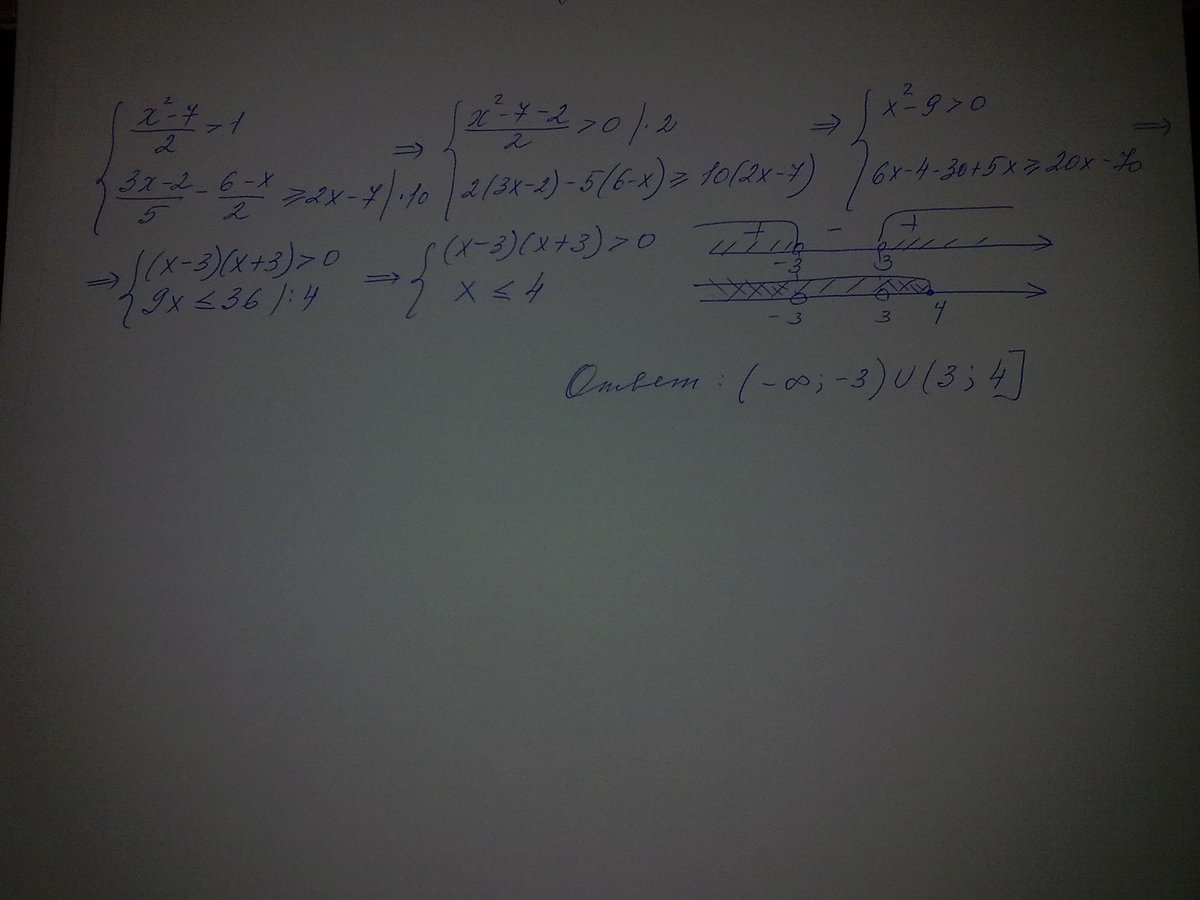 { (x²-7)/2 > 1 ; (3x-2)/5 - (6-x)/2 ≥ 2x-7 |·10 ⇒ { (x²-7-2)/2 > 0 |·2 ; 2(3x-2)-5(6-x) ≥ 10(2x-7) ⇒ { x²-9>0 ; 6x-4-30+5x ≥ 20x-70 ⇒
⇒ { (x-3)(x+3)>0 ; 9x ≤ 36 |:4 ⇒ { (x-3)(x+3)>0 ; x ≤ 4
+ - +
-3 3
-3 3 4
Ответ: (-∞; -3) ∪ (3; 4]